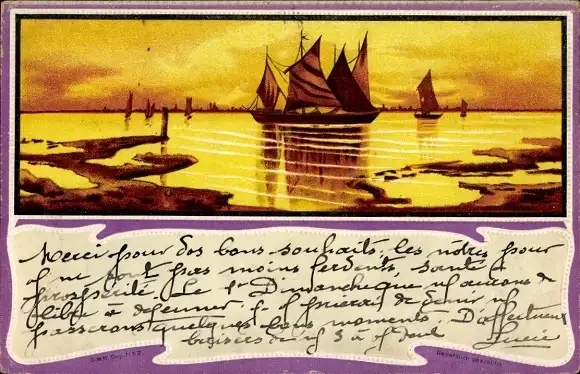 Merci pour vos bons souhaits, les nôtres pour
v/ ne sont pas moins fervents, santé &
prospérité. Le 1er Dimanche que n/ aurons de
libre à déjeuner, je v/ prierai de venir n/
passerons quelques bons moments. D'affectueux
baisers de n/ 3 à v/ deux
Lucie
D.R.G.M. Dep. 1152
Gesetzlich geschützt